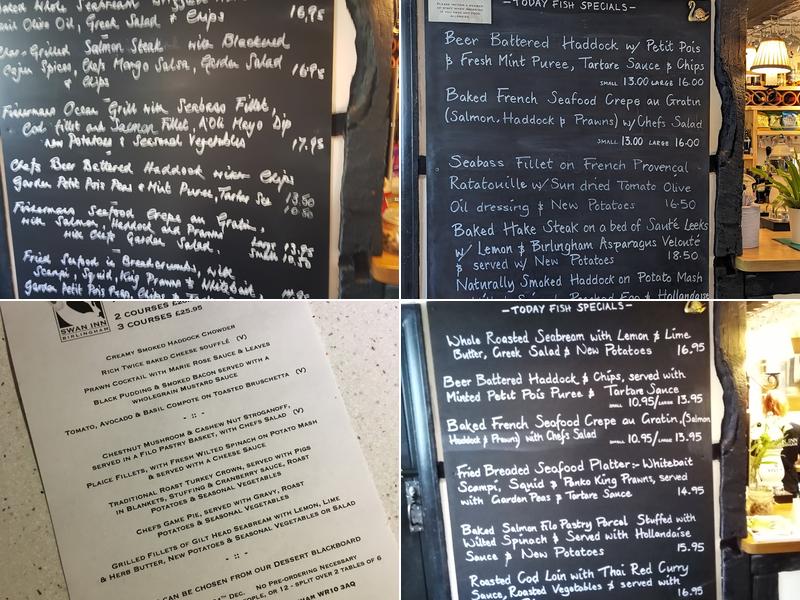 Baked Whole Seabream
Olive Oil, Greek Salad & Chips 16,95
Char-Grilled Salmon Steak with Blackened
Cajun Spices, Chef Mango Salsa, Garden Salad
& Chips 16.95
Fishermans Ocean Grill with Seabass Fillet,
Cod fillet and Salmon Fillet, Aioli Mayo Dip
new Potatoes & Seasonal Vegetables 17.95
Chefs Beer Battered Haddock with Chips
Garden Petit Pois Peas & Mint Puree, Tartar Sce 13.50
10.50
Fishermans Seafood Crepe au Gratin,
with Salmon, Haddock and Prawns
with Chefs Garden Salad. Large 13.95
Small 10.50
Fried Seafood in Breadcrumbs, with
Scampi, Squid, King Prawns & Whitebait,
Garden Petit Pois Peas, Chips &
-TODAY FISH SPECIALS-
Beer Battered Haddock w/ Petit Pois
& Fresh Mint Puree, Tartare Sauce & Chips
SMALL 13.00 LARGE 16.00
Baked French Seafood Crepe au Gratin
(Salmon, Haddock & Prawns) w/ Chefs Salad
SMALL 13.00 LARGE 16.00
Seabass Fillet on French Provençal
Ratatouille w/ Sun dried Tomato Olive
Oil dressing & New Potatoes 16.50
Baked Hake Steak on a bed of Sauté Leeks
w/ Lemon & Birlingham Asparagus Velouté
& served w/ New Potatoes 18.50
Naturally Smoked Haddock on Potato Mash
Poached Egg & Hollandaise
SWAN INN
BIRLINGHAM
2 COURSES
3 COURSES £25.95
CREAMY SMOKED HADDOCK CHOWDER
RICH TWICE BAKED CHEESE SOUFFLÉ (V)
PRAWN COCKTAIL WITH MARIE ROSE SAUCE & LEAVES
BLACK PUDDING & SMOKED BACON SERVED WITH A
WHOLEGRAIN MUSTARD SAUCE
TOMATO, AVOCADO & BASIL COMPOTE ON TOASTED BRUSCHETTA (V)
- :: -
CHESTNUT MUSHROOM & CASHEW NUT STROGANOFF,
SERVED IN A FILO PASTRY BASKET, WITH CHEFS SALAD (V)
PLAICE FILLETS, WITH FRESH WILTED SPINACH ON POTATO MASH
& SERVED WITH A CHEESE SAUCE
TRADITIONAL ROAST TURKEY CROWN, SERVED WITH PIGS
IN BLANKETS, STUFFING & CRANBERRY SAUCE, ROAST
POTATOES & SEASONAL VEGETABLES
CHEFS GAME PIE, SERVED WITH GRAVY, ROAST
POTATOES & SEASONAL VEGETABLES
GRILLED FILLETS OF GILT HEAD SEABREAM WITH LEMON, LIME
& HERB BUTTER, NEW POTATOES & SEASONAL VEGETABLES OR SALAD
- :: -
CAN BE CHOSEN FROM OUR DESSERT BLACKBOARD
DEC. NO PRE-ORDERING NECESSARY
OR 12 - SPLIT OVER 2 TABLES OF 6
WR10 3AQ
-TODAY FISH SPECIALS-
Whole Roasted Seabream with Lemon & Lime
Butter, Greek Salad & New Potatoes 16.95
Beer Battered Haddock & Chips, served with
Minted Petit Pois Puree & Tartare Sauce
SMALL 10.95/LARGE 13.95
Baked French Seafood Crepe au Gratin, (Salmon
Haddock & Prawns) with Chefs Salad SMALL 10.95/LARGE 13.95
Fried Breaded Seafood Platter:- Whitebait
Scampi, Squid & Panko King Prawns, served
with Garden Peas & Tartare Sauce 14.95
Baked Salmon Filo Pastry Parcel Stuffed with
Wilted Spinach & Served with Hollandaise
Sauce & New Potatoes 15.95
Roasted Cod Loin with Thai Red Curry
Sauce, Roasted Vegetables & served with
16.95